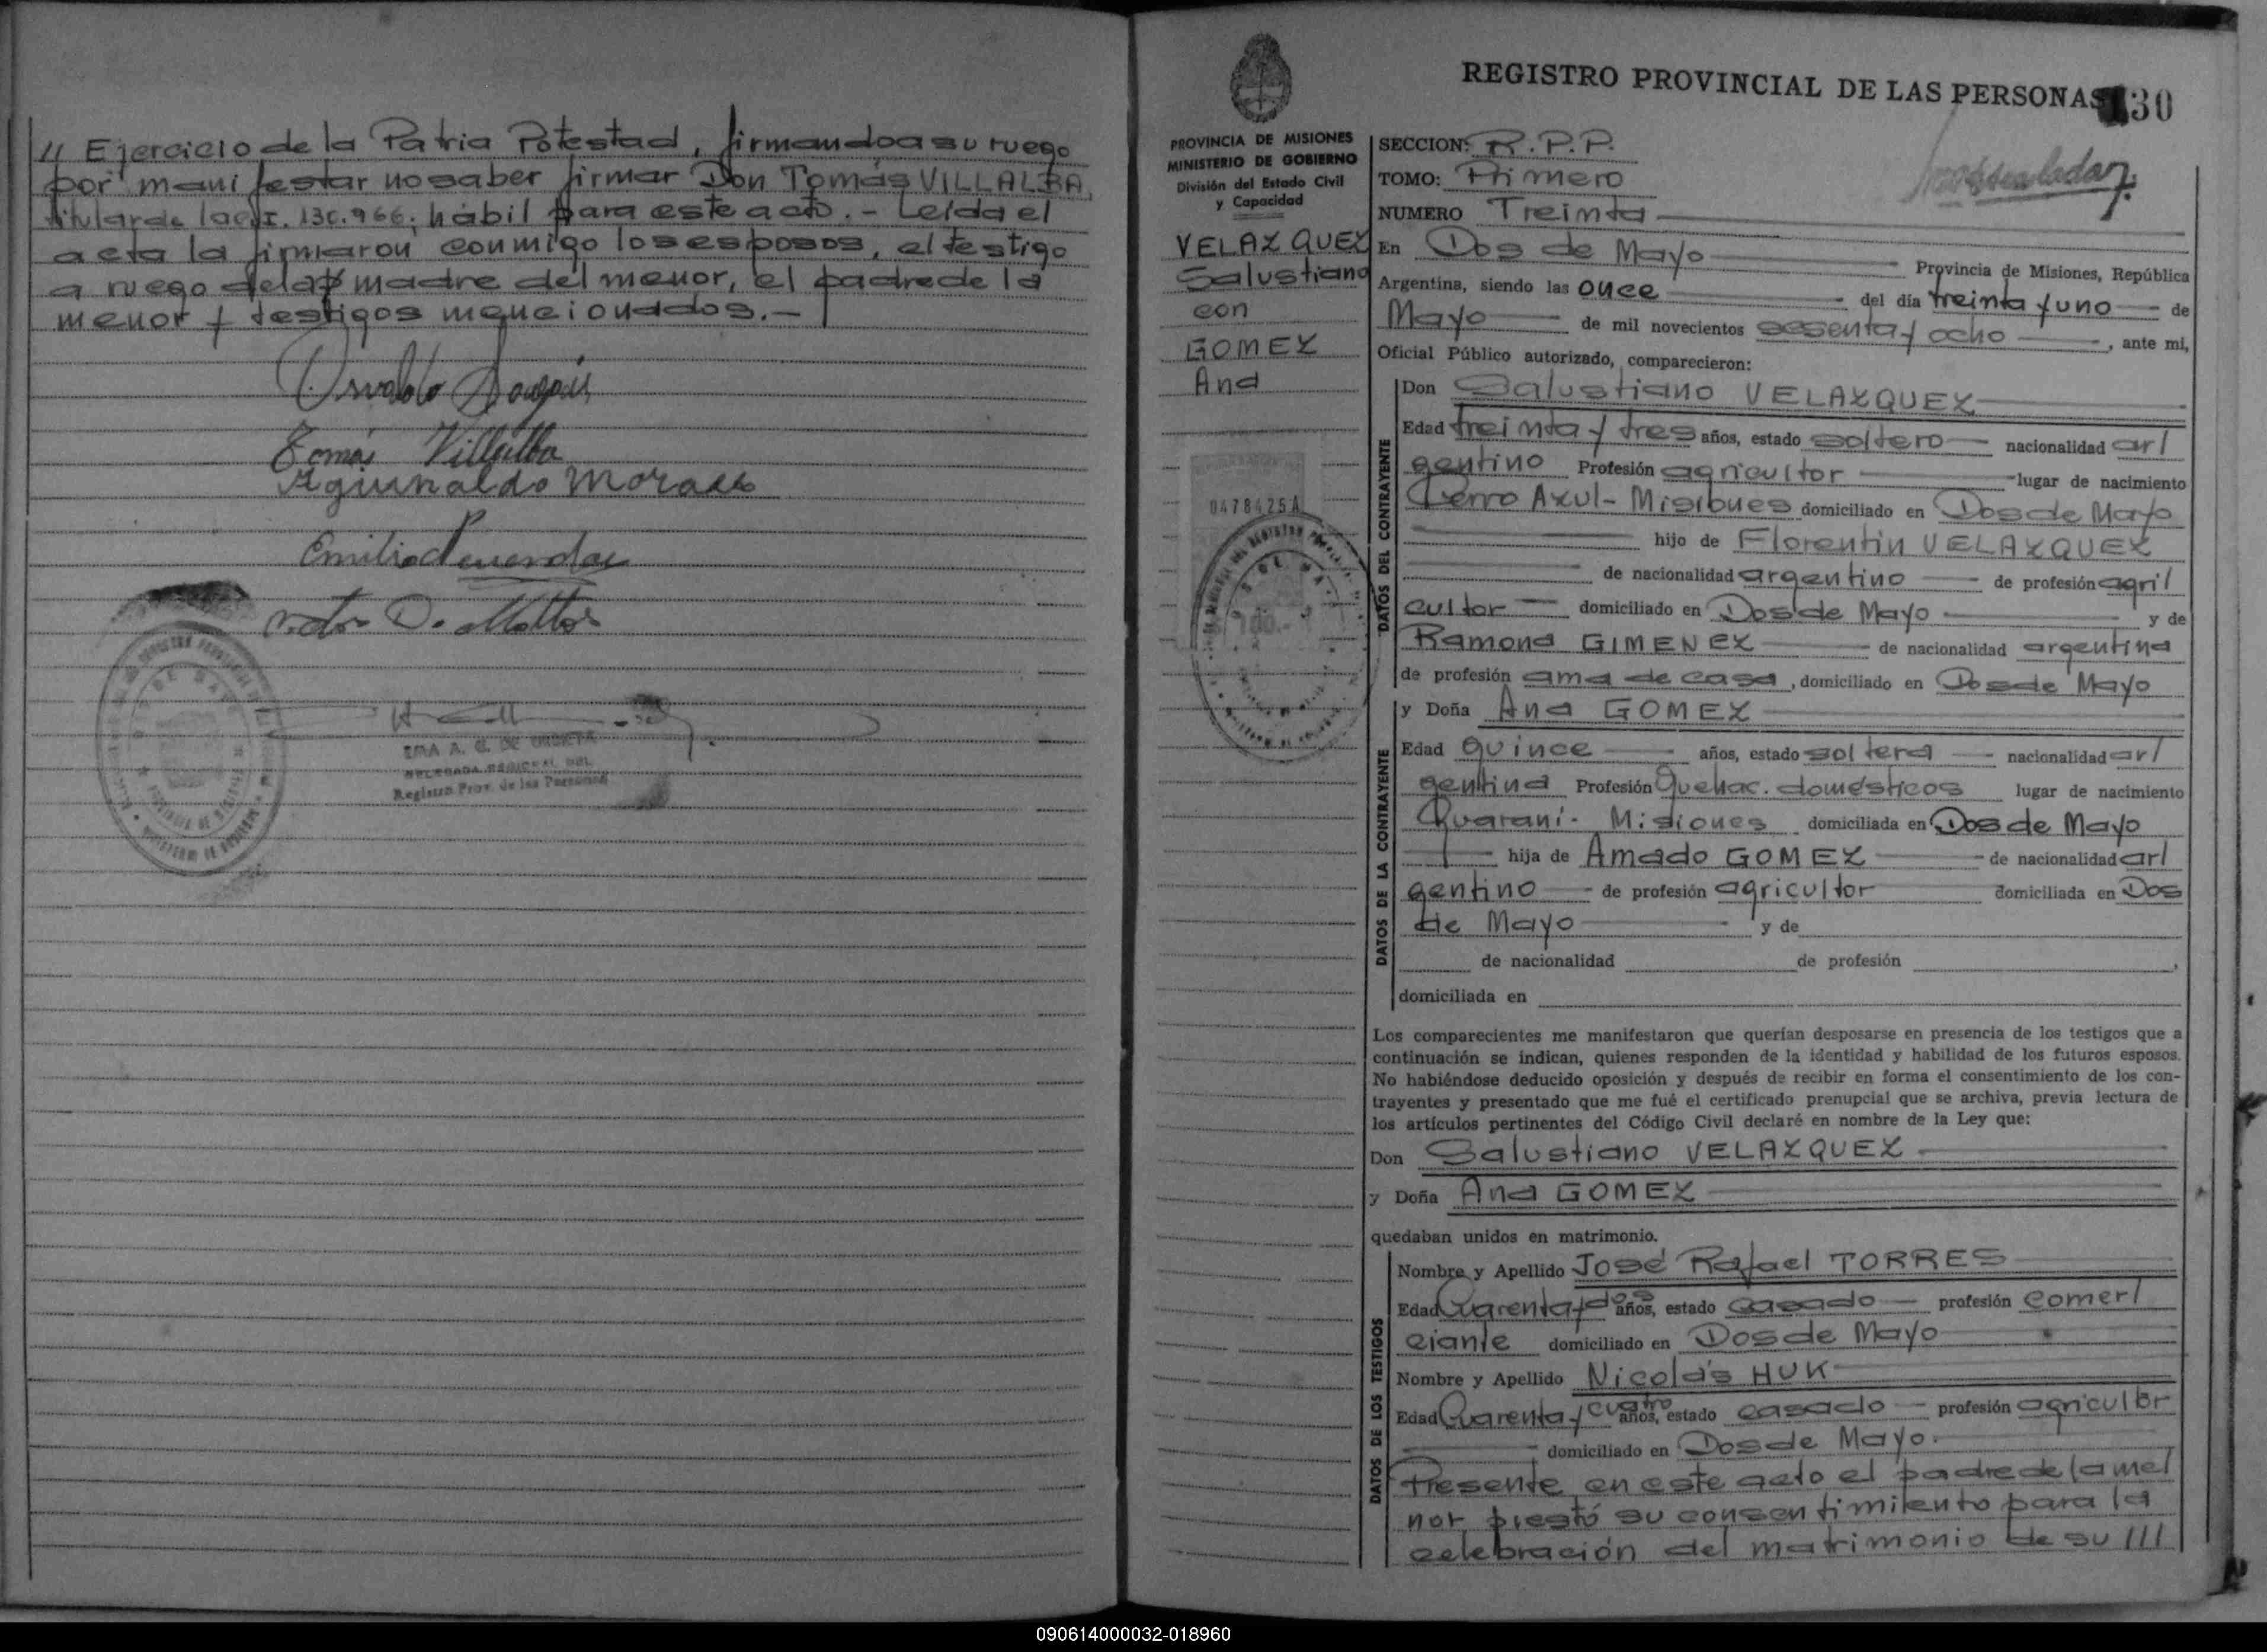 // Ejercicio de la Patria Potestad, firmandoa su ruego
por manifestar no saber firmar Don Tomás VILLALBA,
titular de la c.I. 130.966, hábil para este acto. - Leída el
acta la firmaron conmigo los esposos, el testigo
a ruego de la madre del menor, el padre de la
menor y testigos mencionados. -
Osvaldo
Tomás Villalba
Aguinaldo Moraes
Emilio
D. Mattos
Registro Prov. de las Personas
REGISTRO PROVINCIAL DE LAS PERSONAS
30
PROVINCIA DE MISIONES
MINISTERIO DE GOBIERNO
División del Estado Civil
y Capacidad
VELAZQUEZ
Salustiano
con
GOMEZ
Ana
0478425A
SECCION: R.P.P.
TOMO: Primero
NUMERO Treinta
En Dos de Mayo Provincia de Misiones, República
Argentina, siendo las once del día treinta y uno de
Mayo de mil novecientos sesenta y ocho, ante mi,
Oficial Público autorizado, comparecieron:
DATOS DEL CONTRAYENTE
Don Salustiano VELAZQUEZ
Edad treinta y tres años, estado soltero nacionalidad ar/
gentino Profesión agricultor lugar de nacimiento
Cerro Azul - Misiones domiciliado en Dos de Mayo
hijo de Florentin VELAZQUEZ
de nacionalidad argentino de profesión agri/
cultor domiciliado en Dos de Mayo y de
Ramona GIMENEZ de nacionalidad argentina
de profesión ama de casa, domiciliado en Dos de Mayo
DATOS DE LA CONTRAYENTE
y Doña Ana GOMEZ
Edad quince años, estado soltera nacionalidad ar/
gentina Profesión Quehac. domésticos lugar de nacimiento
Guaraní - Misiones domiciliada en Dos de Mayo
hija de Amado GOMEZ de nacionalidad ar/
gentino de profesión agricultor domiciliada en Dos
de Mayo y de
de nacionalidad de profesión ,
domiciliada en
Los comparecientes me manifestaron que querían desposarse en presencia de los testigos que a
continuación se indican, quienes responden de la identidad y habilidad de los futuros esposos.
No habiéndose deducido oposición y después de recibir en forma el consentimiento de los con-
trayentes y presentado que me fué el certificado prenupcial que se archiva, previa lectura de
los artículos pertinentes del Código Civil declaré en nombre de la Ley que:
Don Salustiano VELAZQUEZ
y Doña Ana GOMEZ
quedaban unidos en matrimonio.
DATOS DE LOS TESTIGOS
Nombre y Apellido José Rafael TORRES
Edad Cuarenta y dos años, estado casado profesión comer/
ciante domiciliado en Dos de Mayo
Nombre y Apellido Nicolás HUK
Edad Cuarenta y cuatro años, estado casado profesión agricultor
domiciliado en Dos de Mayo.
Presente en este acto el padre de la me/
nor prestó su consentimiento para la
celebración del matrimonio de su ///
090614000032-018960